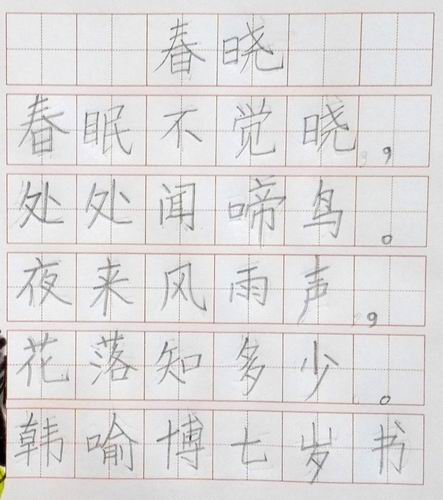 春晓
春眠不觉晓，
处处闻啼鸟。
夜来风雨声，
花落知多少。
韩喻博七岁书